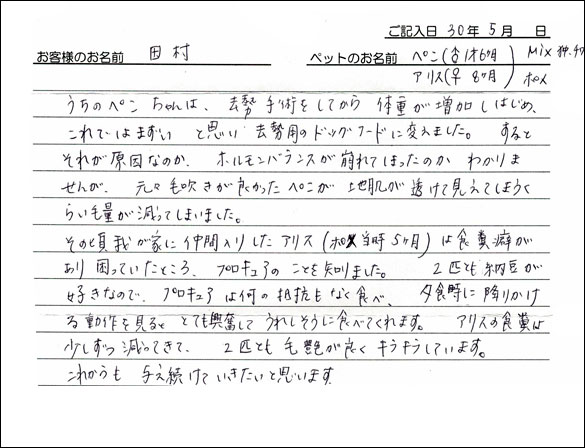 ご記入日 30年 5月 日
お客様のお名前 田村 ペットのお名前 ペコ(♂ 1才6ヶ月) Mix
アリス(♀ 8ヶ月) ポメ
うちのペコちゃんは、去勢手術をしてから体重が増加しはじめ、
これではまずいと思い去勢用のドッグフードに変えました。すると
それが原因なのか、ホルモンバランスが崩れてしまったのかわかりま
せんが、元々毛吹きが良かったペコが地肌が透けて見えてしまうく
らい毛量が減ってしまいました。
その頃我が家に仲間入りしたアリス(ポメ当時5ヶ月)は食糞癖が
あり困っていたところ、プロキュアのことを知りました。 2匹とも納豆が
好きなので、プロキュアは何の抵抗もなく食べ、夕食時に降りかけ
る動作を見るととても興奮してうれしそうに食べてくれます。 アリスの食糞は
少しずつ減ってきて、2匹とも毛艶が良くキラキラしています。
これからも与え続けていきたいと思います